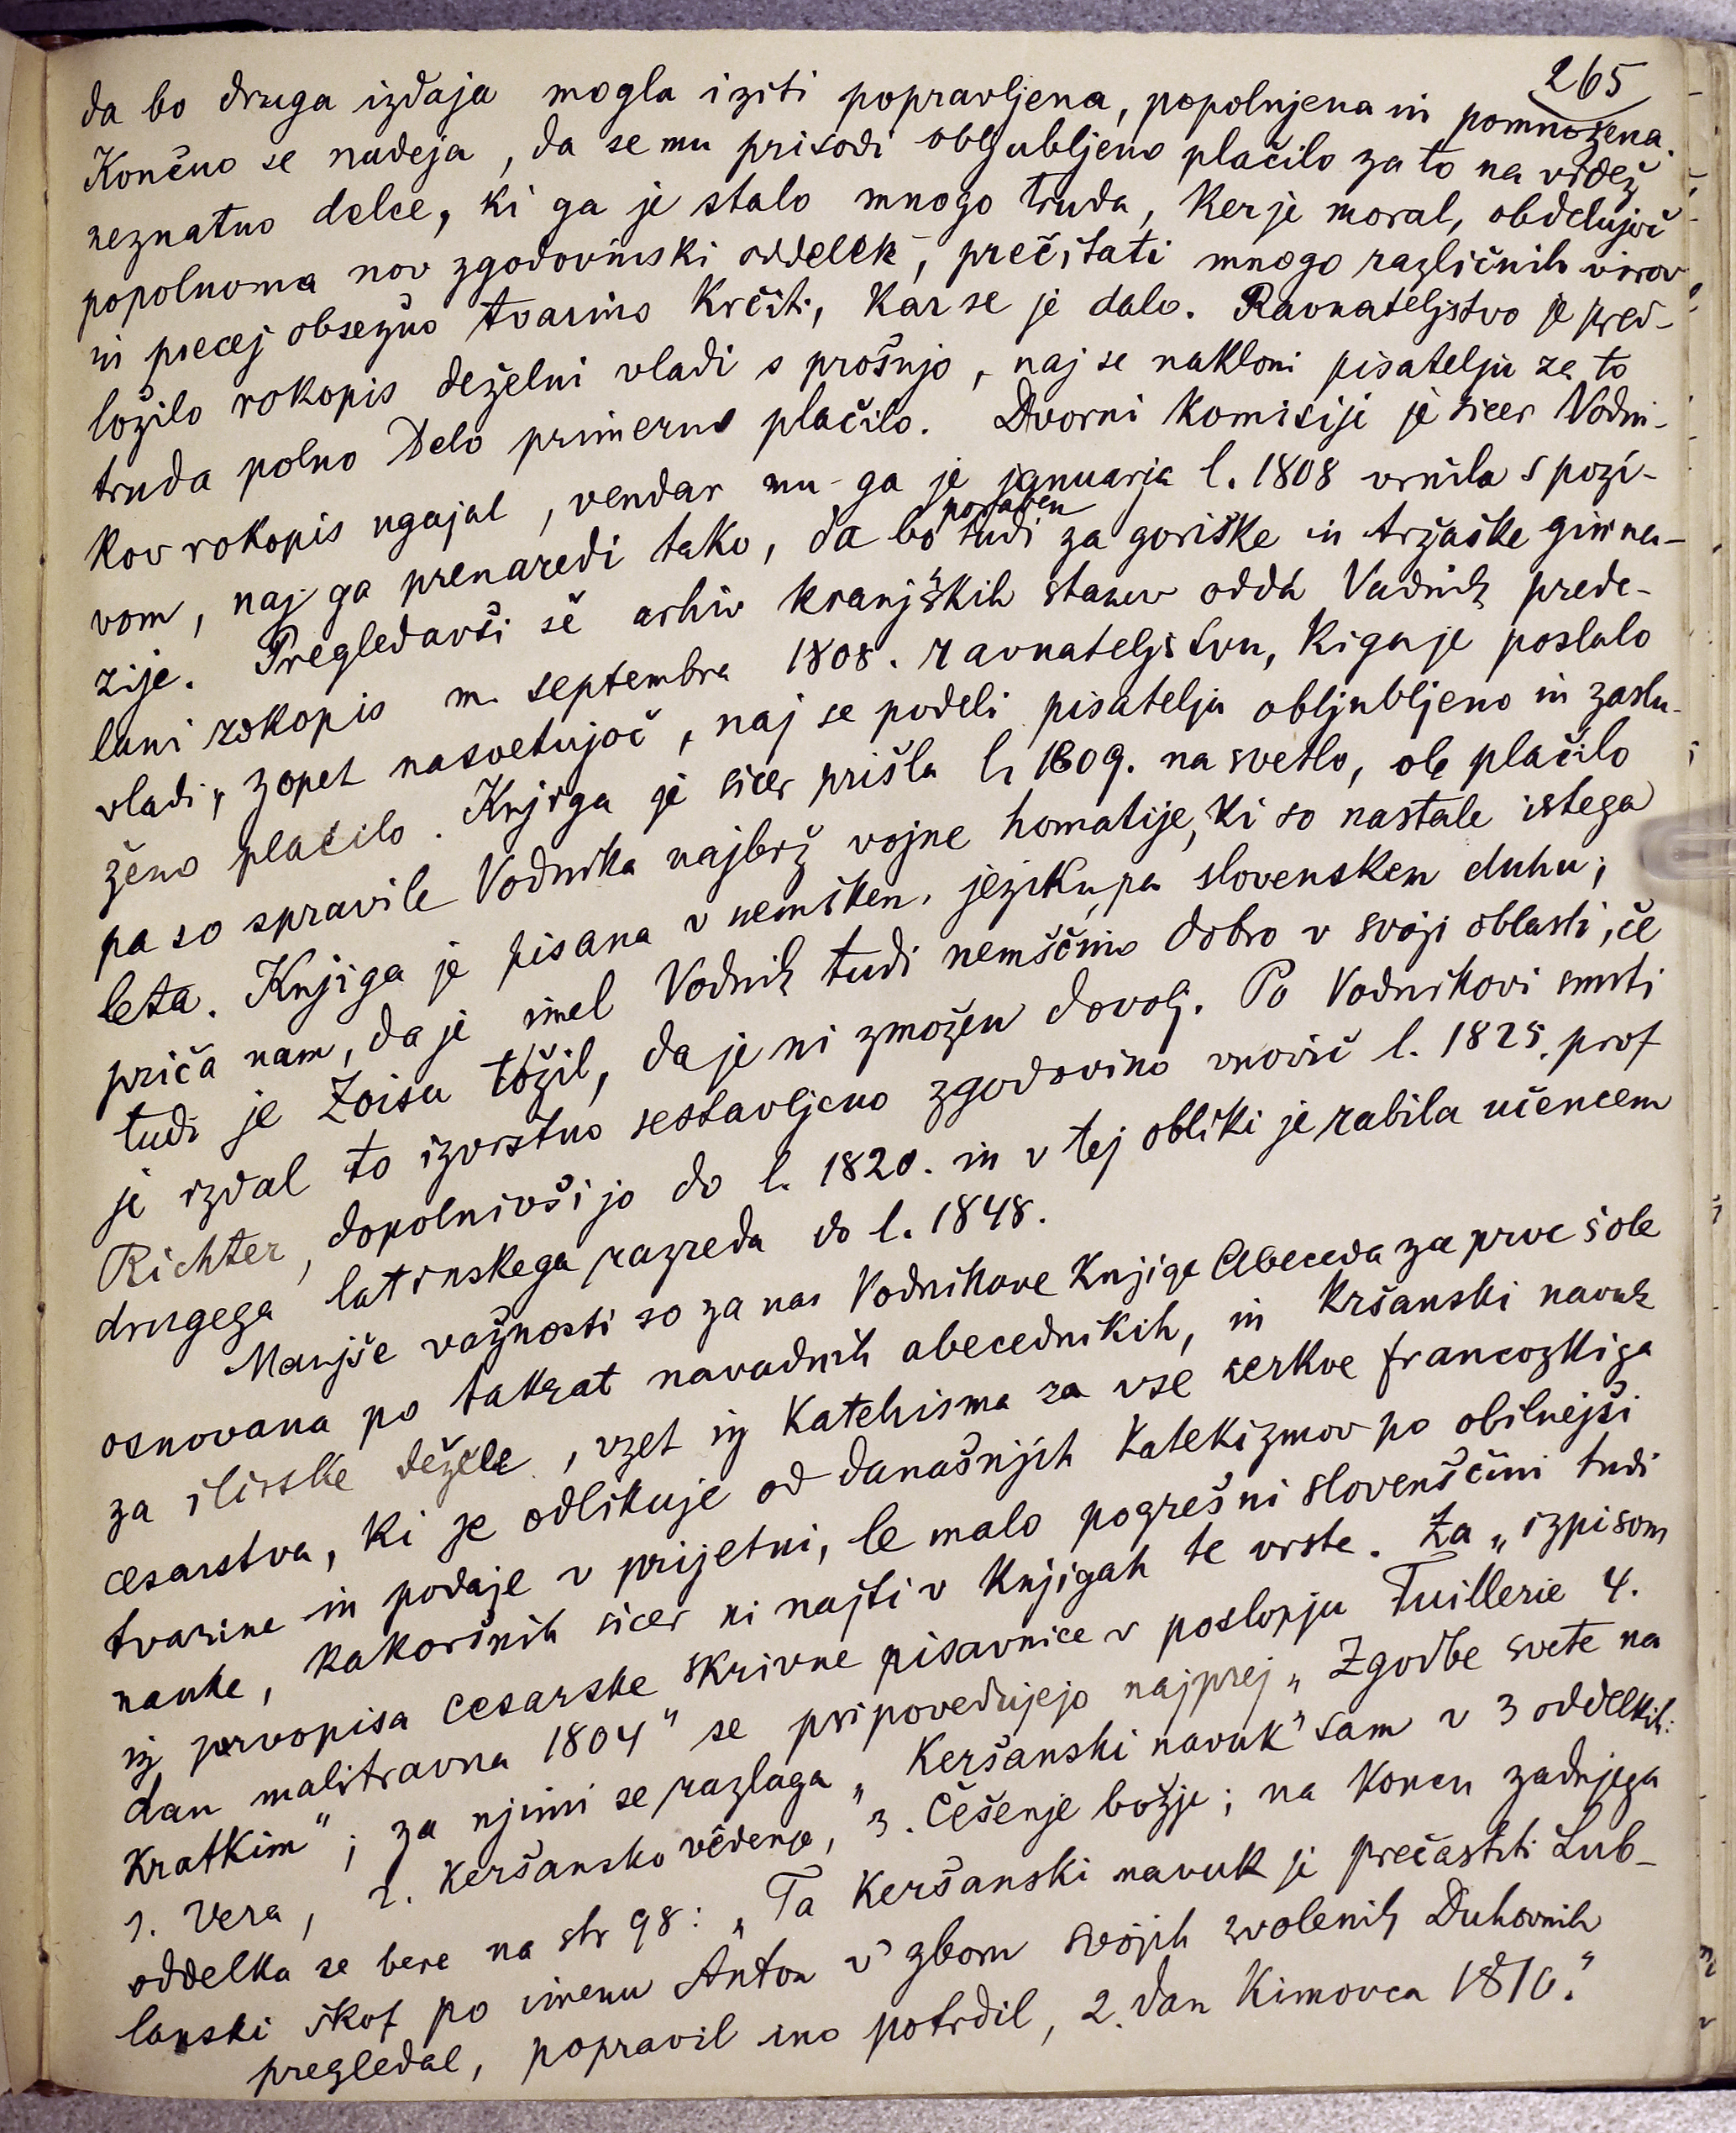 265
da bo druga izdaja mogla iziti popravljena, popolnjena in pomnožena.
Končno se nadeja, da se mu prisodi obljubljeno plačilo za to na videz
neznatno delce, ki ga je stalo mnogo truda, ker je moral, obdelujoč
popolnoma nov zgodovinski oddelek, prečitati mnogo različnih virov
in precej obsežno tvarino krčiti, kar se je dalo. Ravnateljstvo je pred-
ložilo rokopis deželni vladi s prošnjo, naj se nakloni pisatelju za to
truda polno delo primerno plačilo. Dvorni komisiji je sicer Vodni-
kov rokopis ugajal, vendar mu ga je januarja l. 1808 vrnila s pozi-
vom, naj ga prenaredi tako, da bo poraben tudi za goriške in tržaške gimna-
zije. Pregledavši še arhiv kranjskih stanov oddá Vodnik prede-
lani rokopis m. septembra 1808. ravnateljstvu, ki ga je poslalo
vladi, zopet nasvetujoč, naj se podeli pisatelju obljubljeno in zaslu-
ženo plačilo. Knjiga je sicer prišla l. 1809. na svetlo, ob plačilo
pa so spravile Vodnika najbrž vojne homatije, ki so nastale istega
leta. Knjiga je pisana v nemškem jeziku, pa slovenskem duhu;
priča nam, da je imel Vodnik tudi nemščino dobro v svoji oblasti, če
tudi je Zoisu tožil, da je ni zmožen dovolj. Po Vodnikovi smrti
je izdal to izvrstno sestavljeno zgodovino vnovič l. 1825. prof
Richter, dopolnivši jo do l. 1820. in v tej obliki je rabila učencem
drugega latinskega razreda do l. 1848.
Manjše važnosti so za nas Vodnikove knjige Abeceda za prve šole
osnovana po takrat navadnih abecednikih, in Kršanski navuk
za ilirske dežele, vzet iz Katehisma za vse cerkve francozkiga
cesarstva, ki se odlikuje od današnjih katekizmov po obilnejši
tvarine in podaje v prijetni, le malo pogrešni slovenščini tudi
nauke, kakoršnih sicer ni najti v knjigah te vrste. Za „izpisom
iz prvopisa cesarske skrivne pisavnice v poslopju Tuillerie 4.
dan malitravna 1804" se pripovedujejo najprej „Zgodbe svete na
kratkim"; za njimi se razlaga „Keršanski navuk" sam v 3 oddelkih:
1. Vera, 2. Keršansko vêdenje, 3. Češenje božje; na koncu zadnjega
oddelka se bere na str 98: „Ta Keršanski navuk je prečastiti Lub-
lanski škof po imenu Anton v' zboru svojih zvolenih Duhovnih
pregledal, popravil ino potrdil, 2. dan Kimovca 1810."